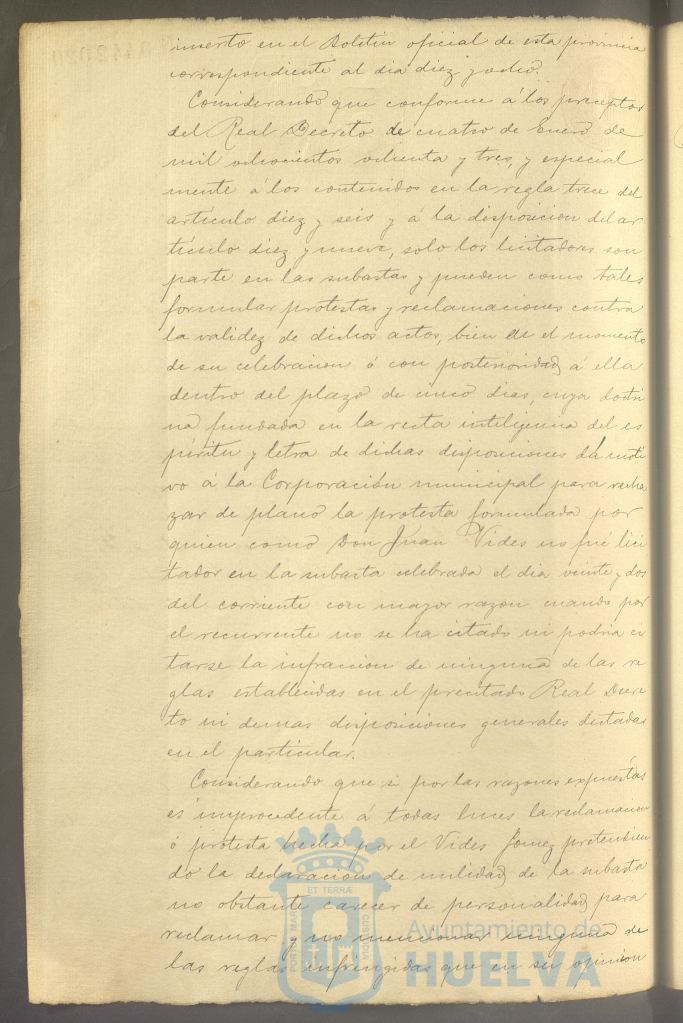 inserto en el Boletin oficial de esta provincia
correspondiente al dia diez y ocho.
Considerando que conforme á los preceptos
del Real Decreto de cuatro de Enero de
mil ochocientos ochenta y tres, y especial
mente á los contenidos en la regla trece del
artículo diez y seis y á la disposicion del ar
tículo diez y nueve, solo los licitadores son
parte en las subastas y pueden como tales
formular protestas y reclamaciones contra
la validez de dichos actos, bien en el momento
de su celebracion ó con posterioridad á ella
dentro del plazo de cinco dias, cuya doctri
na fundada en la recta inteligencia del es
píritu y letra de dichas disposiciones dá moti
vo á la Corporación municipal para recha
zar de plano la protesta formulada por
quien como Don Juan Vides no fué lici
tador en la subasta celebrada el dia veinte y dos
del corriente con mayor razon cuando por
el recurrente no se ha citado ni podria ci
tarse la infraccion de ninguna de las re
glas establecidas en el precitado Real Decre
to ni demas disposiciones generales dictadas
en el particular.
Considerando que si por las razones expuestas
es improcedente á todas luces la reclamacion
ó protesta hecha por el Vides Gomez pretendien
do la declaracion de nulidad de la subasta
no obstante carecer de personalidad para
reclamar y no mencionar ninguna de
las reglas infringidas que en su opinion
PORTUS MARIS
ET TERRÆ
CUSTODIA
Ayuntamiento de
HUELVA